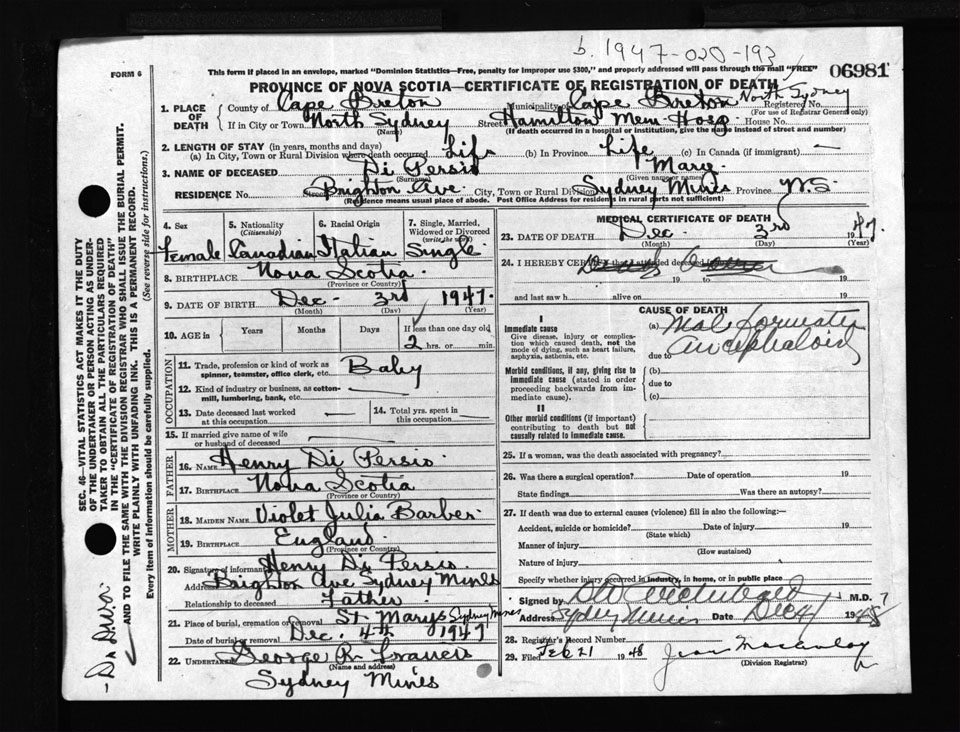 b. 1947-020-193
FORM 6
This form if placed in an envelope, marked "Dominion Statistics—Free, penalty for improper use $300," and properly addressed will pass through the mail "FREE"
06981
PROVINCE OF NOVA SCOTIA—CERTIFICATE OF REGISTRATION OF DEATH
North Sydney
1. PLACE OF DEATH
County of Cape Breton Municipality of Cape Breton Registered No.
(For use of Registrar General only)
If in City or Town North Sydney Street Hamilton Mem Hosp House No.
(Name) (If death occurred in a hospital or institution, give the name instead of street and number)
2. LENGTH OF STAY (in years, months and days)
(a) In City, Town or Rural Division where death occurred Life (b) In Province Life (c) In Canada (if immigrant) —
3. NAME OF DECEASED Di Persio Mary
(Surname) (Given name or names)
RESIDENCE No. Street Brighton Ave. City, Town or Rural Division Sydney Mines Province N.S.
(Residence means usual place of abode. Post Office Address for residents in rural parts not sufficient)
4. Sex
Female
5. Nationality (Citizenship)
Canadian
6. Racial Origin
Italian
7. Single, Married, Widowed or Divorced (write the word)
Single
8. BIRTHPLACE Nova Scotia
(Province or Country)
9. DATE OF BIRTH Dec. 3rd 1947.
(Month) (Day) (Year)
10. AGE in Years Months Days If less than one day old
2 hrs. or min.
OCCUPATION
11. Trade, profession or kind of work as spinner, teamster, office clerk, etc. Baby
12. Kind of industry or business, as cotton-mill, lumbering, bank, etc. —
13. Date deceased last worked at this occupation —
14. Total yrs. spent in this occupation
15. If married give name of wife or husband of deceased
FATHER
16. NAME Henry Di Persio.
17. BIRTHPLACE Nova Scotia
(Province or Country)
MOTHER
18. MAIDEN NAME Violet Julia Barber
19. BIRTHPLACE England
(Province or Country)
20. Signature of informant Henry Di Persio
Address Brighton Ave Sydney Mines
Relationship to deceased Father
21. Place of burial, cremation or removal St Marys Sydney Mines
Date of burial or removal Dec. 4th 1947
22. UNDERTAKER George R. Francis
(Name and address)
Sydney Mines
MEDICAL CERTIFICATE OF DEATH
23. DATE OF DEATH Dec 3rd 1947
(Month) (Day) (Year)
24. I HEREBY CERTIFY that I attended deceased from
19 to 19
and last saw h alive on 19
CAUSE OF DEATH
I
Immediate cause
Give disease, injury, or complication which caused death, not the mode of dying, such as heart failure, asphyxia, asthenia, etc.
(a)
due to
Morbid conditions, if any, giving rise to immediate cause (stated in order proceeding backwards from immediate cause).
(b)
due to
(c)
II
Other morbid conditions (if important) contributing to death but not causally related to immediate cause.
25. If a woman, was the death associated with pregnancy?
26. Was there a surgical operation? Date of operation 19
State findings Was there an autopsy?
27. If death was due to external causes (violence) fill in also the following:—
Accident, suicide or homicide? Date of injury 19
(State which)
Manner of injury
(How sustained)
Nature of injury
Specify whether injury occurred in industry, in home, or in public place
Signed by M.D.
Address Sydney Mines Date Dec 4 19
28. Registrar's Record Number
29. Filed Feb 21 1948
(Division Registrar)
SEC. 46—VITAL STATISTICS ACT MAKES IT THE DUTY OF THE UNDERTAKER OR PERSON ACTING AS UNDERTAKER TO OBTAIN ALL THE PARTICULARS REQUIRED IN THE "CERTIFICATE OF REGISTRATION OF DEATH"
AND TO FILE THE SAME WITH THE DIVISION REGISTRAR WHO SHALL ISSUE THE BURIAL PERMIT.
WRITE PLAINLY WITH UNFADING INK. THIS IS A PERMANENT RECORD.
Every item of information should be carefully supplied. (See reverse side for instructions.)